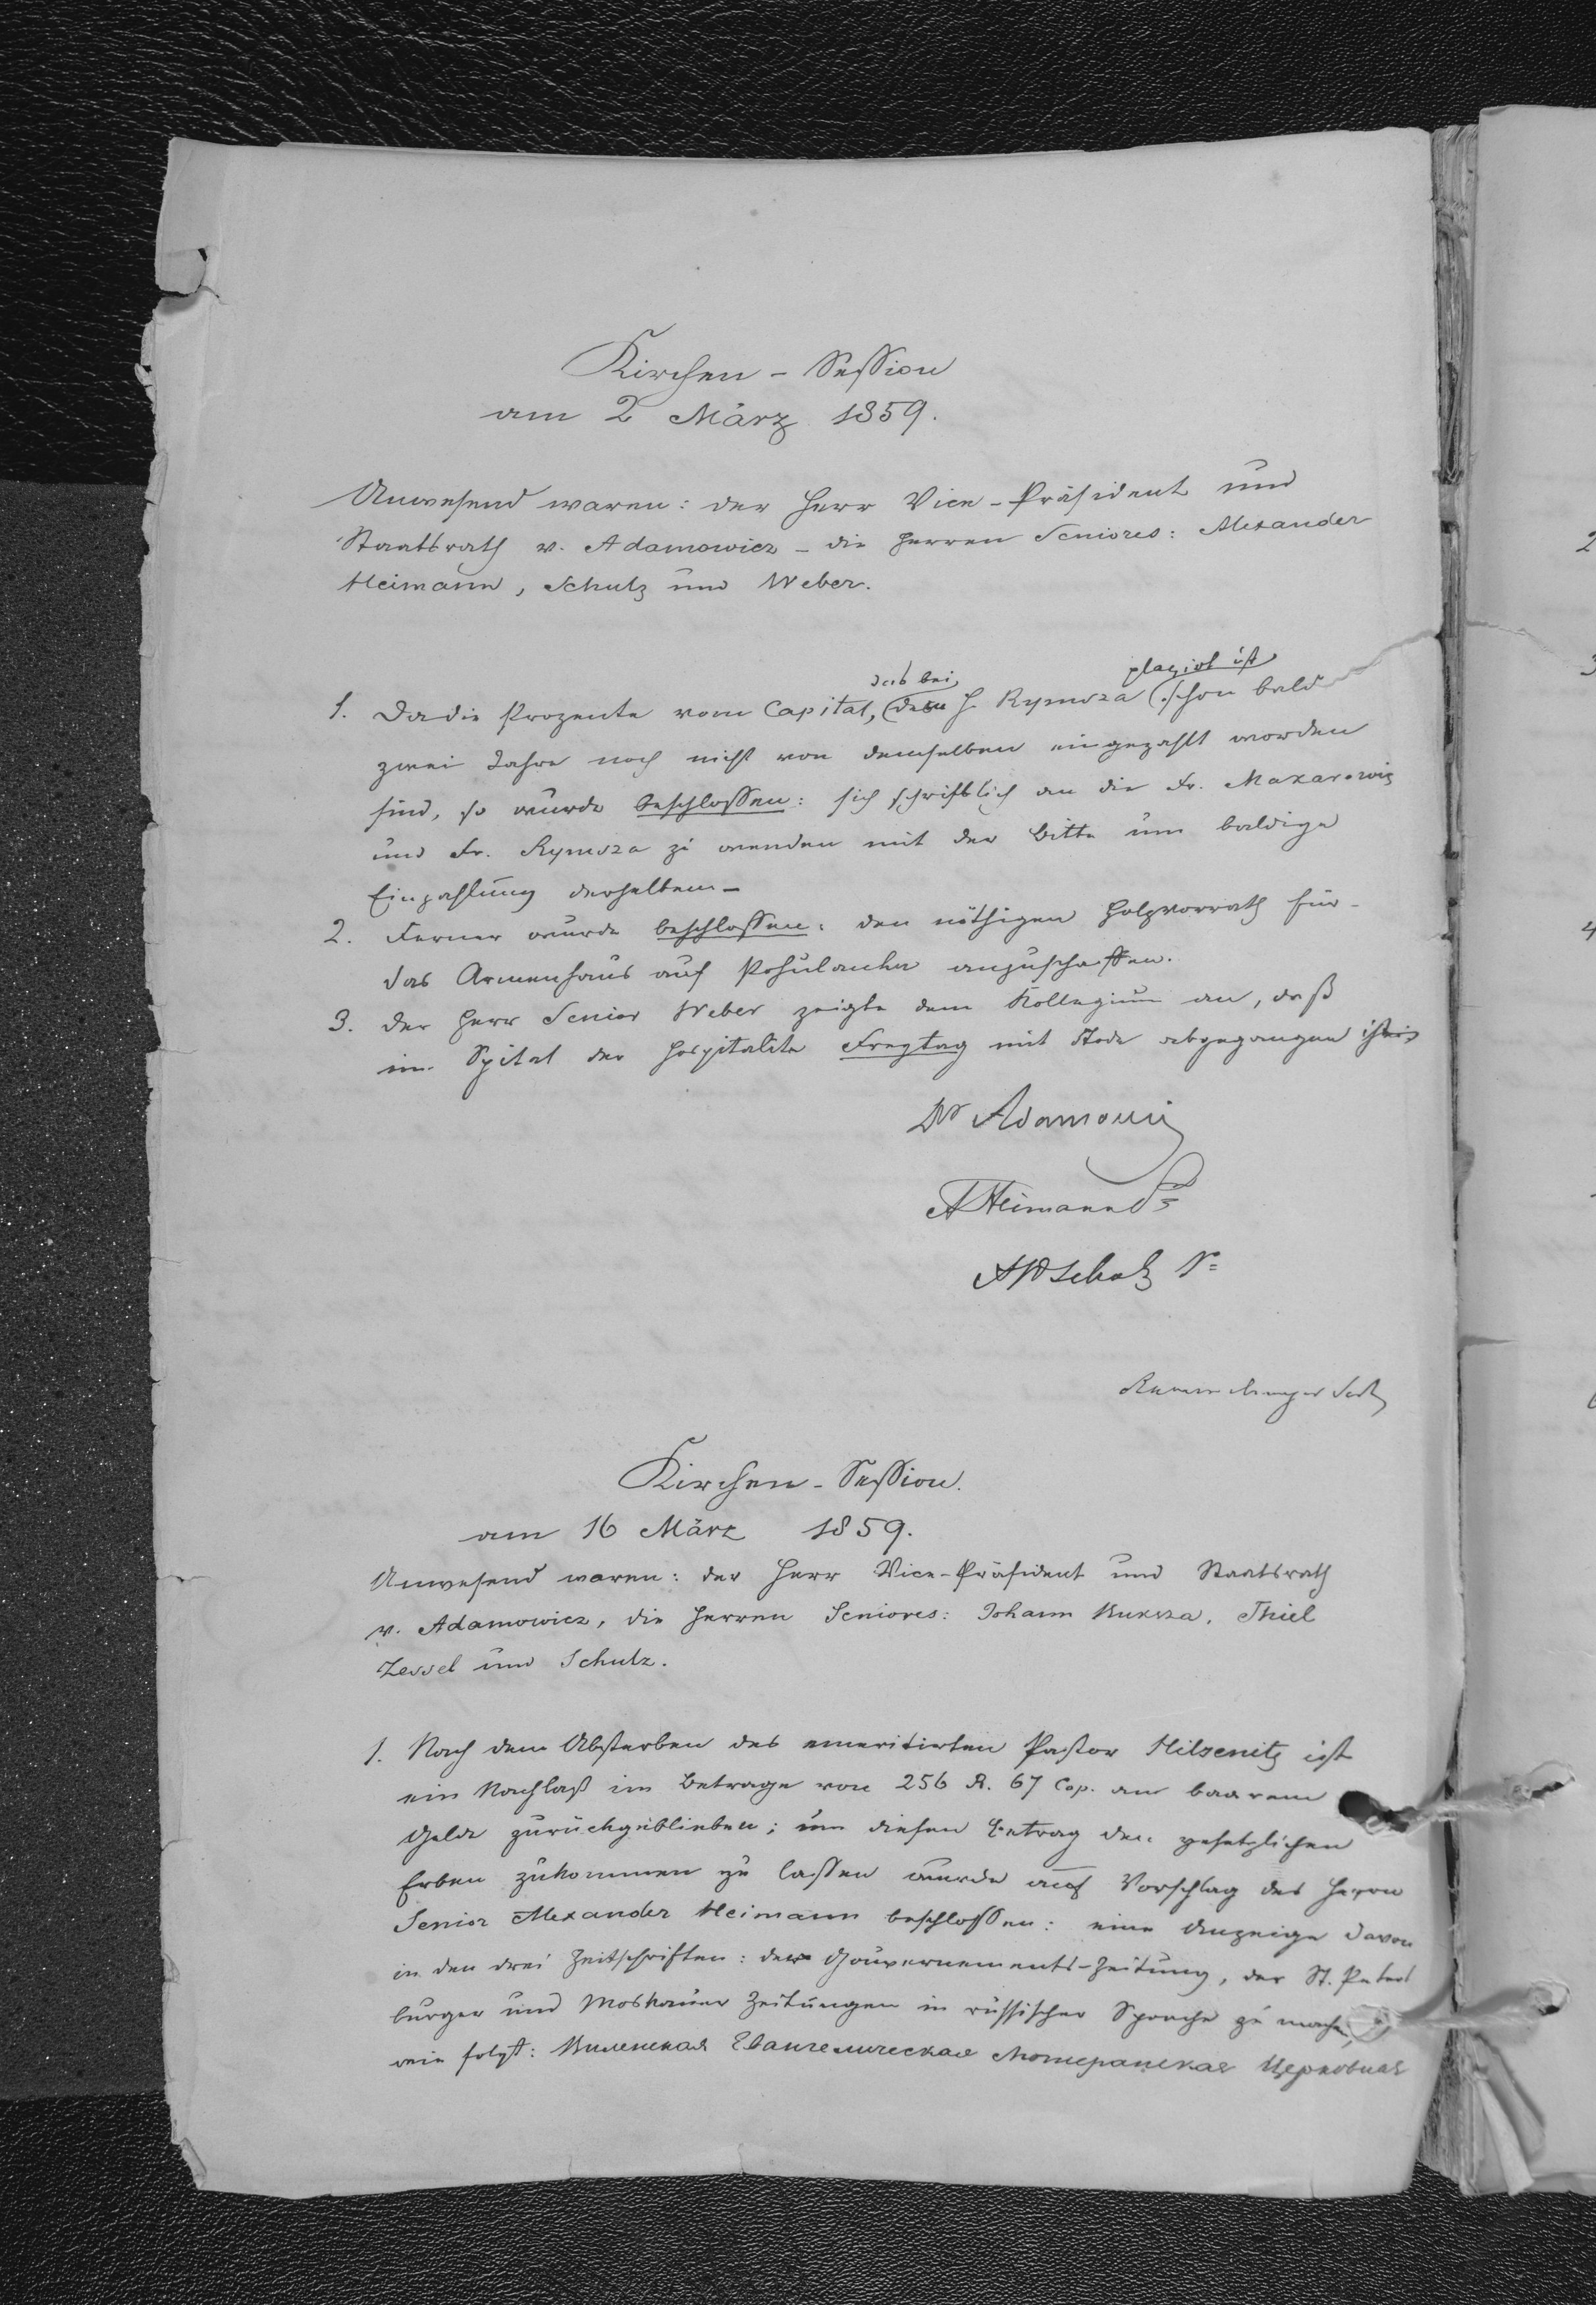 Kirchen-Session
am 2 März 1859.
Anwesend waren: der Herr Vice-Präsident und
Staatsrath v. Adamowicz - die Herren Seniores: Alexander
Heimann, Schulz und Weber.
das bei plazirt ist
1. Da die Prozente vom Capital, H. Rymsza schon bald
zwei Jahre noch nicht von demselben eingezahlt worden
sind, so wurde beschlossen: sich schriftlich an die Fr. Makarowicz
und Fr. Rymsza zu wenden mit der Bitte um baldige
Einzahlung derselben-
2. Ferner wurde beschlossen: den nöthigen Holzvorrath für
das Armenhaus auf Pohulanka anzuschaffen.
3. Der Herr Senior Weber zeigte dem Kollegium an, daß
im Spital der Hospitalite Freytag mit Tode abgegangen ist
Dr Adamowicz
A Heimann
Schulz
Kirchen-Session.
am 16 März 1859.
Anwesend waren: der Herr Vice-Präsident und Staatsrath
v. Adamowicz, die Herren Seniores: Johann Buksza, Thiel
Zessel und Schulz.
1. Nach dem Absterben des emeritirten Pastor Hilzenitz ist
ein Nachlaß im Betrage von 256 R. 67 Cop. an baarem
Gelde zurückgeblieben; um diesen Betrag den gesetzlichen
Erben zukommen zu lassen wurde auf Vorschlag des Herrn
Senior Alexander Heimann beschlossen: eine Anzeige davon
in den drei Zeitschriften: der Gouvernements-Zeitung, der St. Peters
burger und Moskauer Zeitungen in russischer Sprache zu machen,
wie folgt: Виленская Евангелическая Лютеранская Церковная